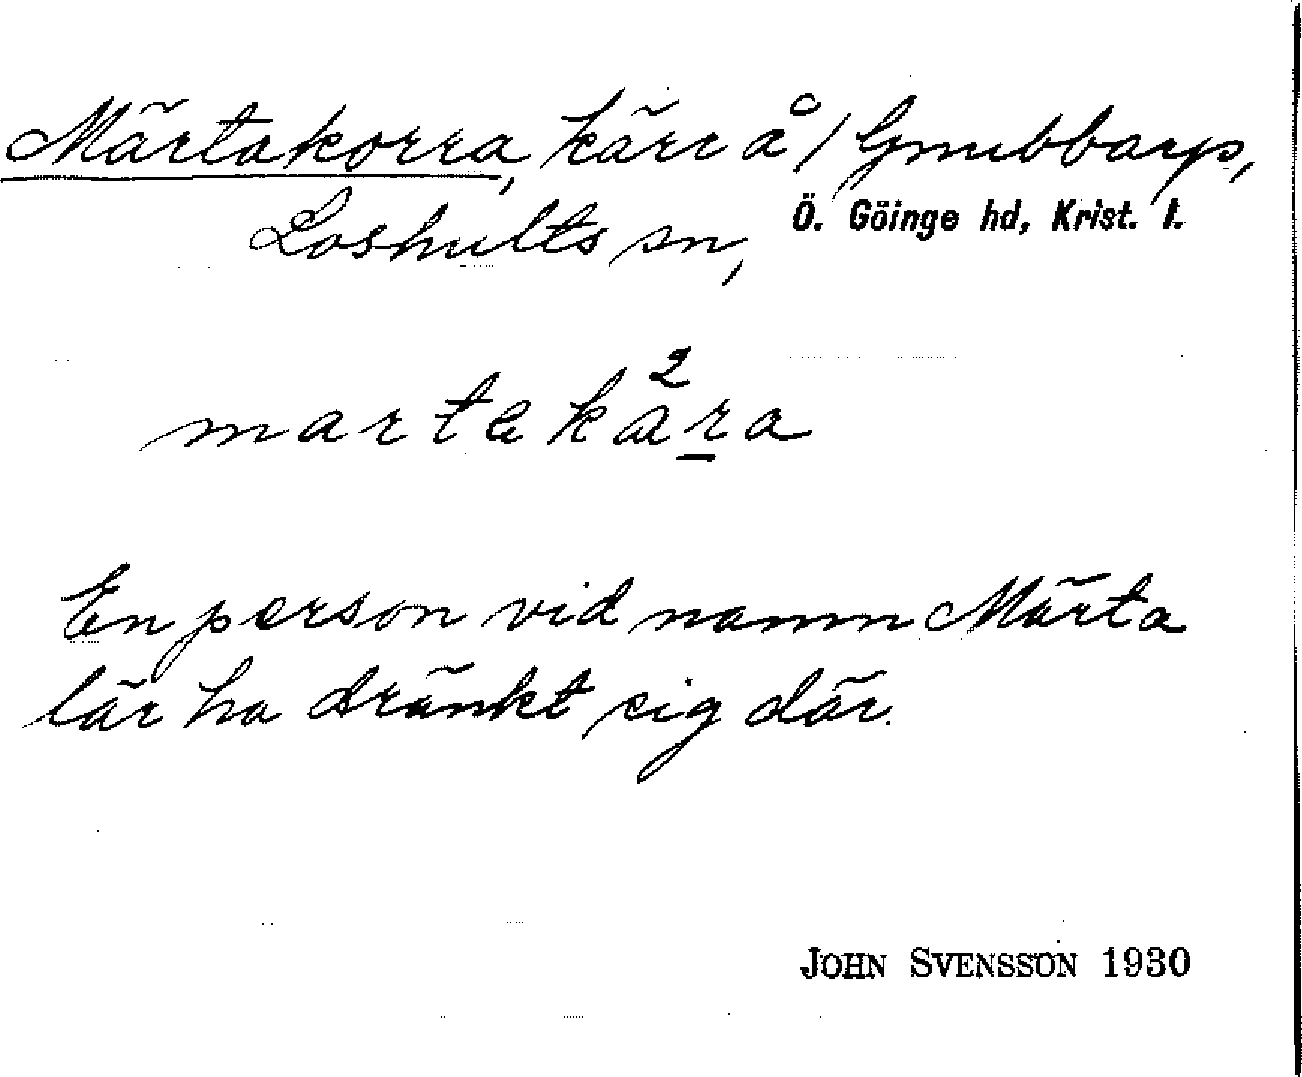 Märtakorra, kärr å / Gnubbarp,
Loshults sn, Ö. Göinge hd, Krist. l.
martekåra
2
En person vid namn Märta
lär ha dränkt sig där.
JOHN SVENSSON 1930